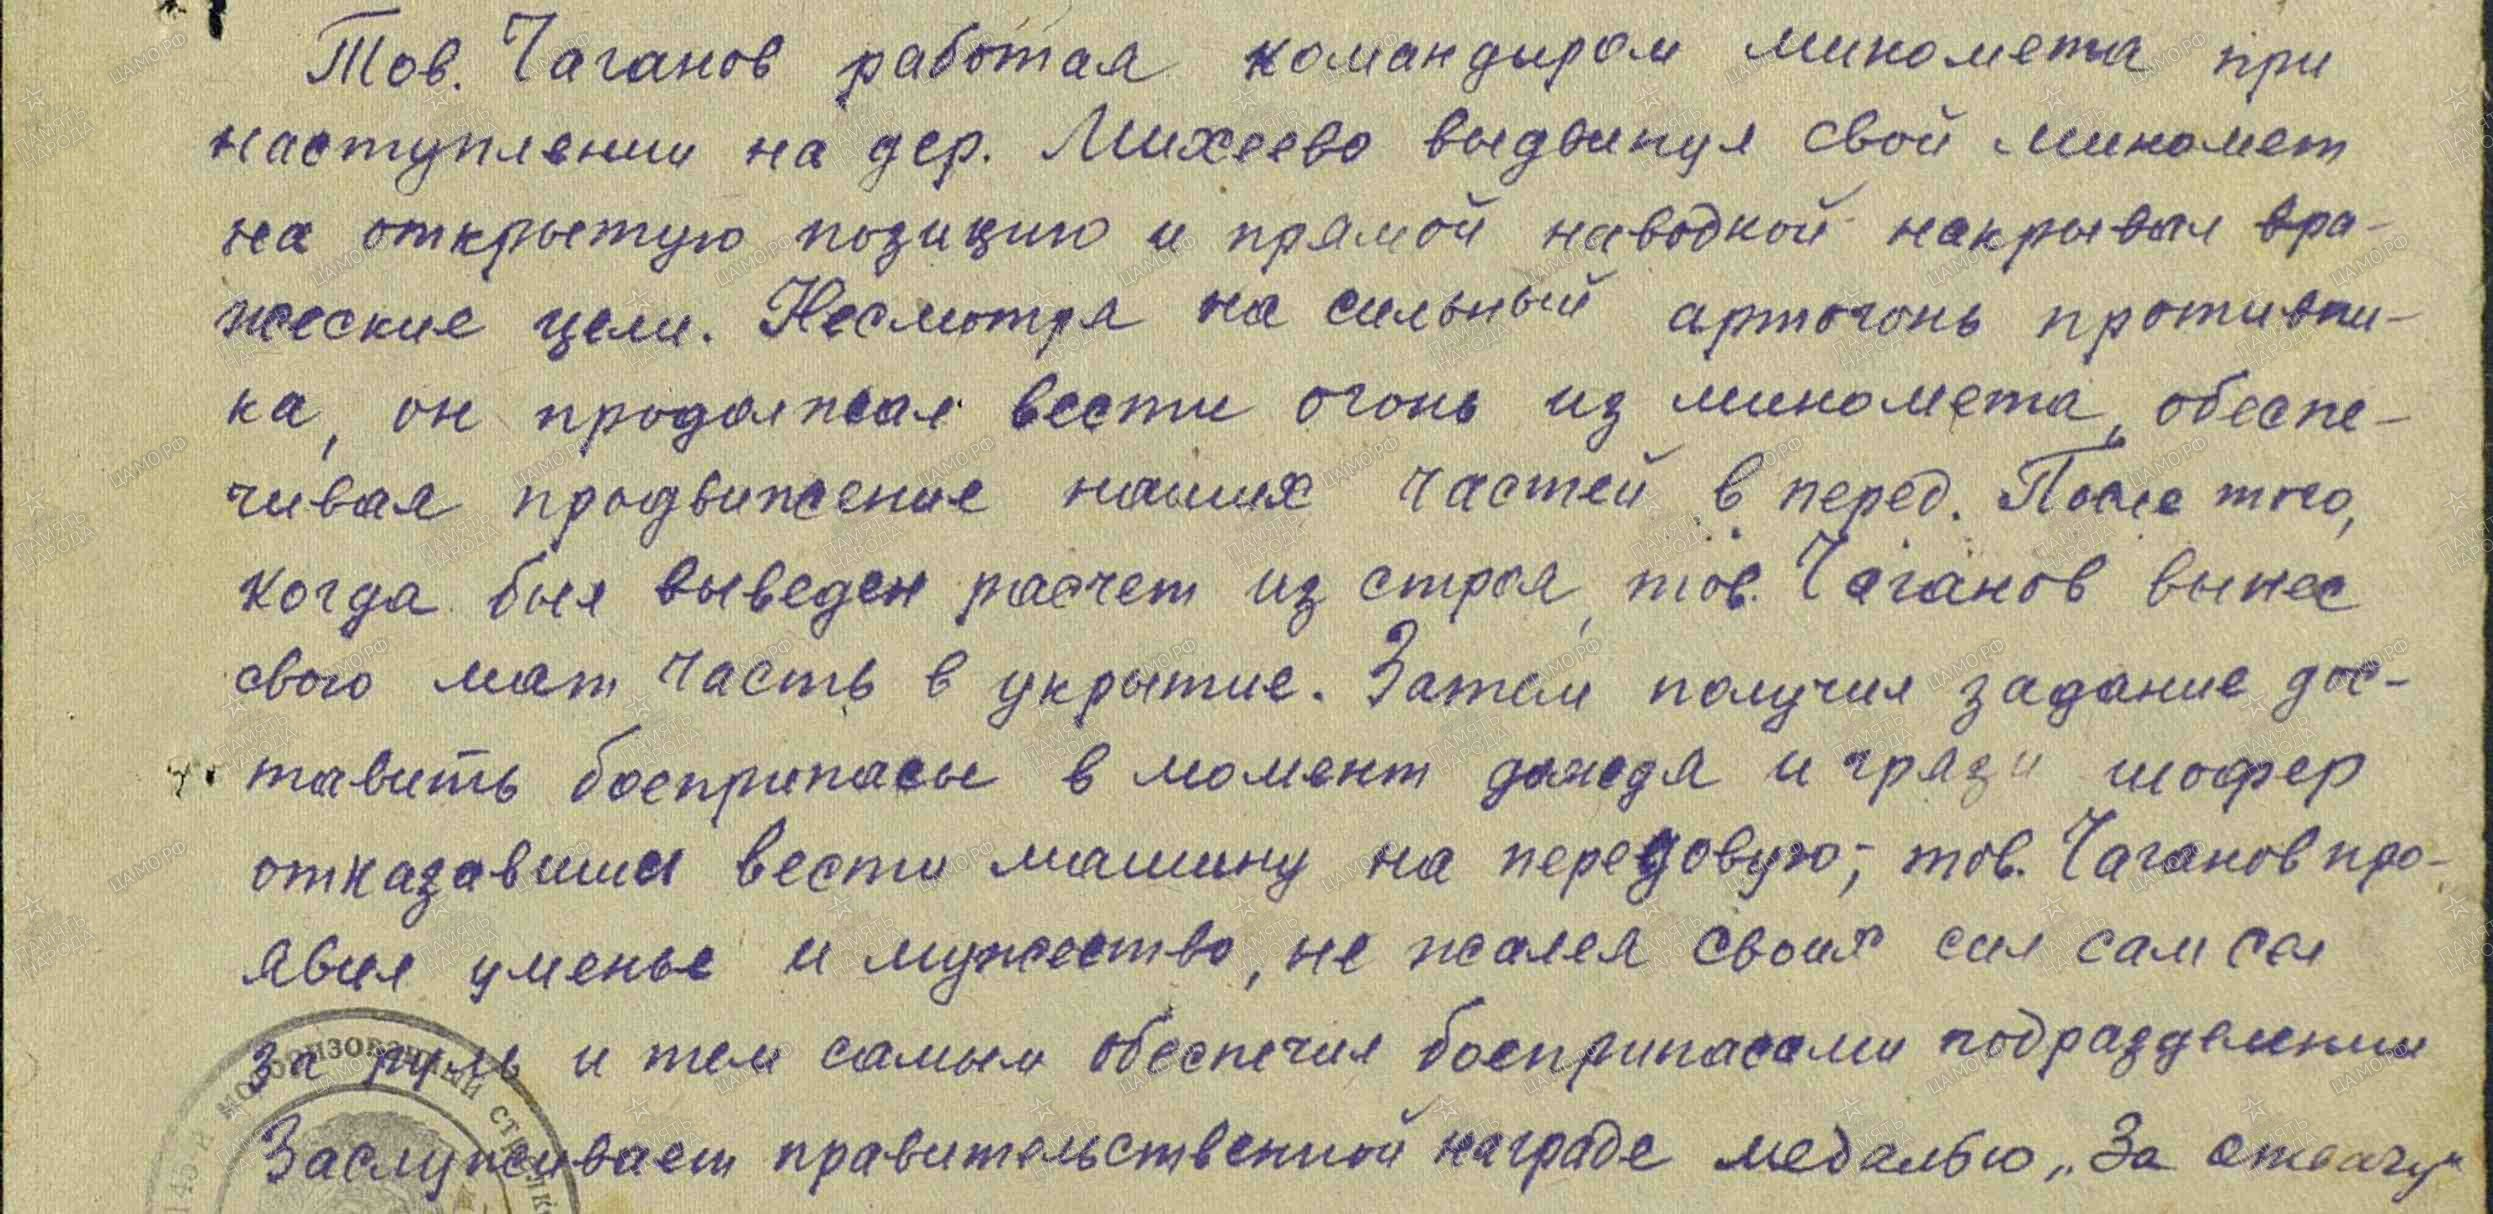 Тов. Чаганов работая командиром миномета при
наступлении на дер. Михеево выдвинул свой миномет
на открытую позицию и прямой наводкой накрывал вра-
жеские цели. Несмотря на сильный артогонь противни-
ка, он продолжал вести огонь из миномета, обеспе-
чивая продвижение наших частей в перед. После того,
когда был выведен расчет из строя, тов. Чаганов вынес
свою мат часть в укрытие. Затем получил задание дос-
тавить боеприпасы в момент дождя и грязи шофер
отказавшись вести машину на передовую, тов. Чаганов про-
явил уменье и мужество, не жалея своих сил сам сел
за руль и тем самым обеспечил боеприпасами подразделения
Заслуживает правительственной награде медалью „За отвагу“